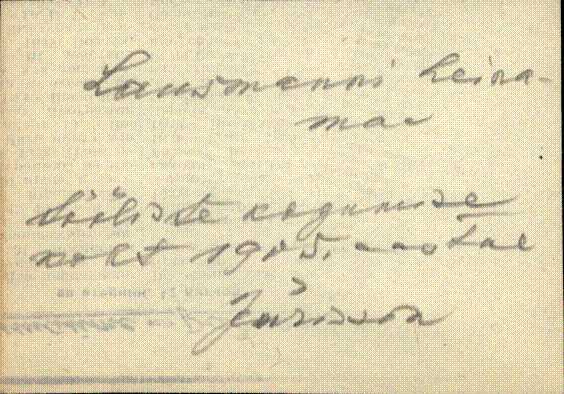 Lausmanni heina-
maa
tööliste kogumise
koht 1905. aastal
Jürisson